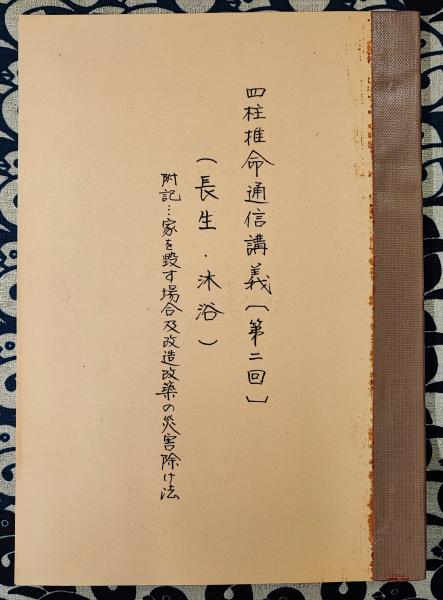 四柱推命通信講義〔第二回〕
(長生・沐浴)
附記…家を毀す場合及改造改築の災害除け法